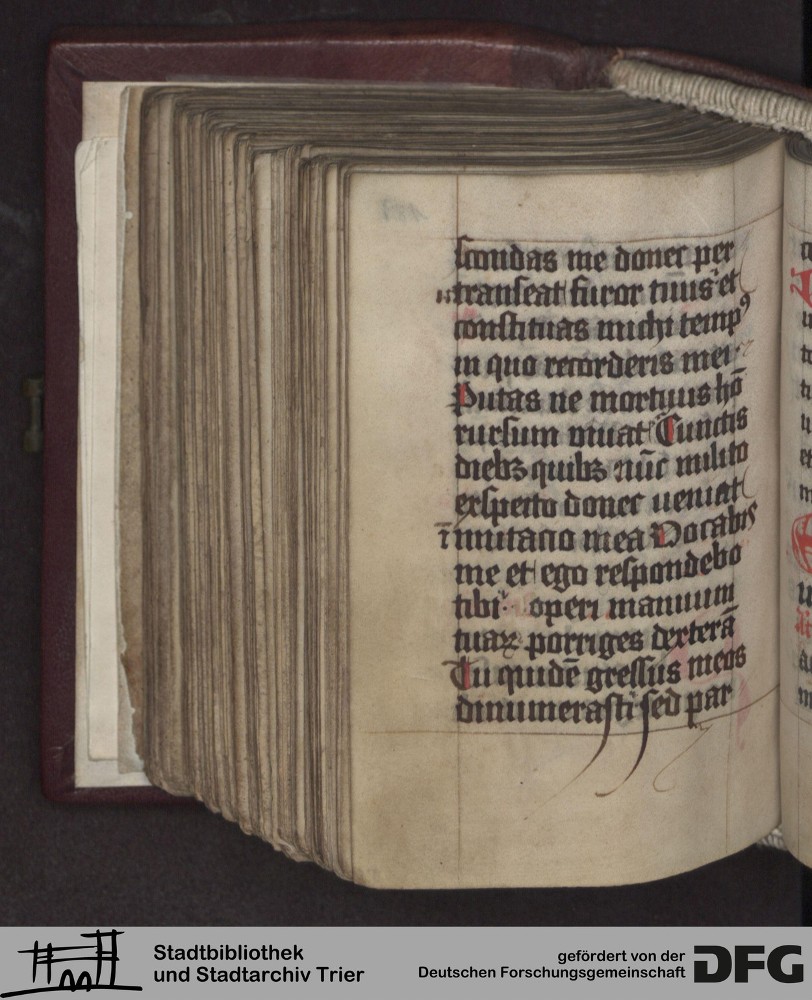 scondas me donec per
transeat furor tuus et
constituas michi tempꝰ
in quo recorderis mei
Putas ne mortuus hō
rursum viuat Cunctis
diebꝫ quibꝫ nūc milito
exspecto donec ueniat
īmutacio mea Vocabis
me et ego respondebo
tibi operi manuum
tuaꝝ porriges dexterā
Tu quidē gressus meos
dinumerasti sed par
Stadtbibliothek
und Stadtarchiv Trier
gefördert von der
Deutschen Forschungsgemeinschaft
DFG